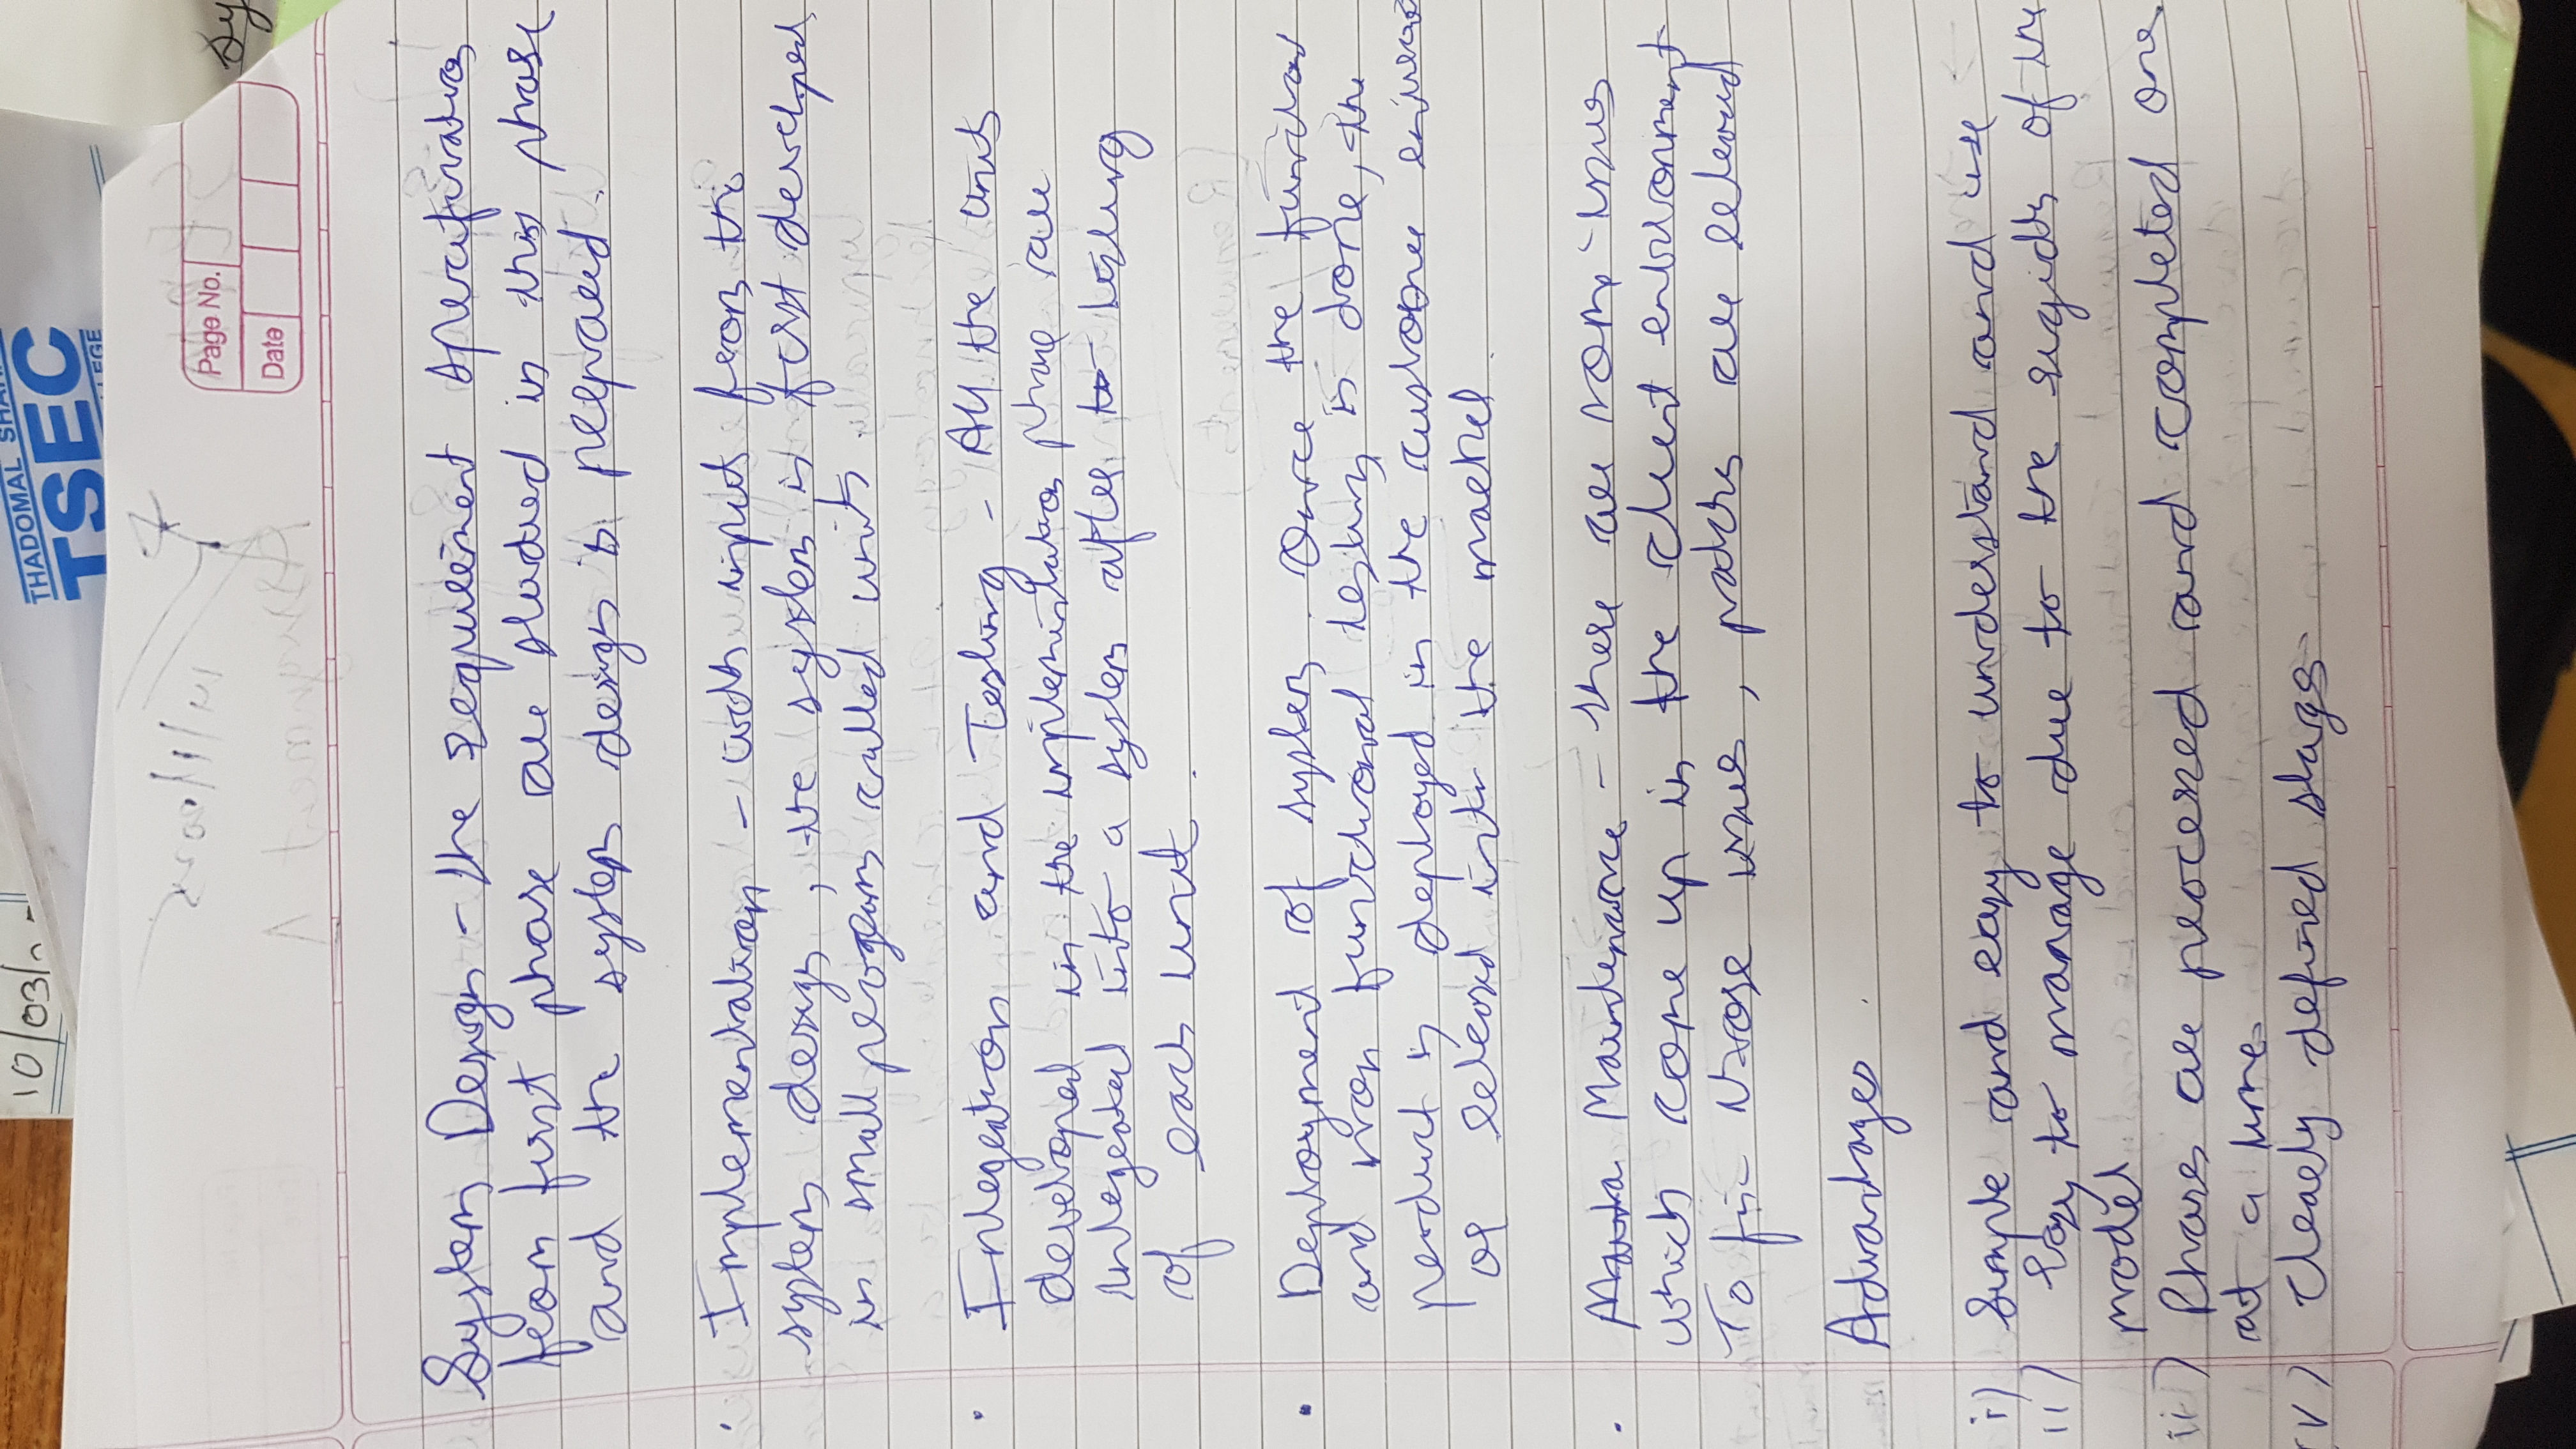 10/03/
THADOMAL SHA
TSEC
LEGE
Page No.
Date
Sy
System Design - the requirement specification
from first phase are studied in this phase
and the system design is prepared.
· Implementation - with input from the
system design, the system is first developed
in small programs called units
· Integration and Testing - All the units
developed in the implementation phase are
integrated into a system after to testing
of each unit.
· Deployment of system. Once the function
and non functional testing is done, the
product is deployed in the customer
or released into the market.
· Mainta Maintenance - there are some issues
which come up in the client environment
To fix those issues, patches are released
Advantages.
i) Simple and easy to understand and use
ii) Easy to manage due to the rigidity of the
model
iii) Phases are processed and completed one
at a time.
iv) Clearly defined stages.